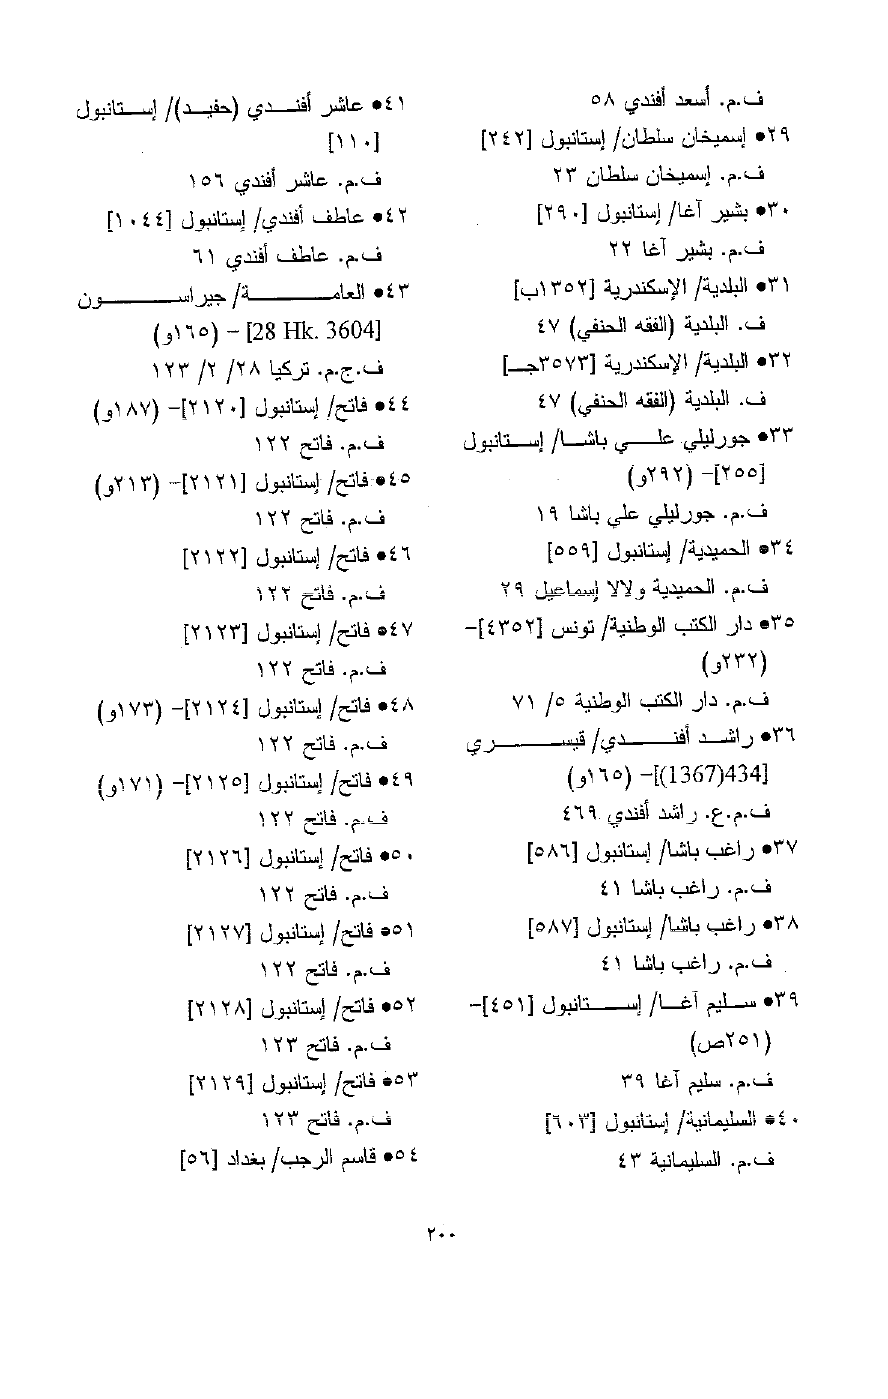 ف.م. أسعد أفندي ٥٨
٢٩• إسميخان سلطان/ إستانبول [٢٤٢]
ف.م. إسميخان سلطان ٢٣
٣٠• بشير آغا/ إستانبول [٢٩٠]
ف.م. بشير آغا ٢٢
٣١• البلدية/ الإسكندرية [١٣٥٢ب]
ف. البلدية (الفقه الحنفي) ٤٧
٣٢• البلدية/ الإسكندرية [٣٥٧٣جـ]
ف. البلدية (الفقه الحنفي) ٤٧
٣٣• جورليلي علي باشا/ إستانبول
[٢٥٥]– (٢٩٢و)
ف.م. جورليلي علي باشا ١٩
٣٤• الحميدية/ إستانبول [٥٥٩]
ف.م. الحميدية ولالا إسماعيل ٢٩
٣٥• دار الكتب الوطنية/ تونس [٤٣٥٢]–
(٢٣٢و)
ف.م. دار الكتب الوطنية ٥/ ٧١
٣٦• راشد أفندي/ قيسري
[434(1367)]– (١٦٥و)
ف.م.ع. راشد أفندي ٤٦٩
٣٧• راغب باشا/ إستانبول [٥٨٦]
ف.م. راغب باشا ٤١
٣٨• راغب باشا/ إستانبول [٥٨٧]
ف.م. راغب باشا ٤١
٣٩• سليم آغا/ إستانبول [٤٥١]–
(٢٥١ص)
ف.م. سليم آغا ٣٩
٤٠• السليمانية/ إستانبول [٦٠٣]
ف.م. السليمانية ٤٣
٤١• عاشر أفندي (حفيد)/ إستانبول
[١١٠]
ف.م. عاشر أفندي ١٥٦
٤٢• عاطف أفندي/ إستانبول [١٠٤٤]
ف.م. عاطف أفندي ٦١
٤٣• العامة/ جيراسون
[28 Hk. 3604] – (١٦٥و)
ف.ج.م. تركيا ٢٨/ ٢/ ١٢٣
٤٤• فاتح/ إستانبول [٢١٢٠]– (١٨٧و)
ف.م. فاتح ١٢٢
٤٥• فاتح/ إستانبول [٢١٢١]– (٢١٣و)
ف.م. فاتح ١٢٢
٤٦• فاتح/ إستانبول [٢١٢٢]
ف.م. فاتح ١٢٢
٤٧• فاتح/ إستانبول [٢١٢٣]
ف.م. فاتح ١٢٢
٤٨• فاتح/ إستانبول [٢١٢٤]– (١٧٣و)
ف.م. فاتح ١٢٢
٤٩• فاتح/ إستانبول [٢١٢٥]– (١٧١و)
ف.م. فاتح ١٢٢
٥٠• فاتح/ إستانبول [٢١٢٦]
ف.م. فاتح ١٢٢
٥١• فاتح/ إستانبول [٢١٢٧]
ف.م. فاتح ١٢٢
٥٢• فاتح/ إستانبول [٢١٢٨]
ف.م. فاتح ١٢٣
٥٣• فاتح/ إستانبول [٢١٢٩]
ف.م. فاتح ١٢٣
٥٤• قاسم الرجب/ بغداد [٥٦]
٢٠٠